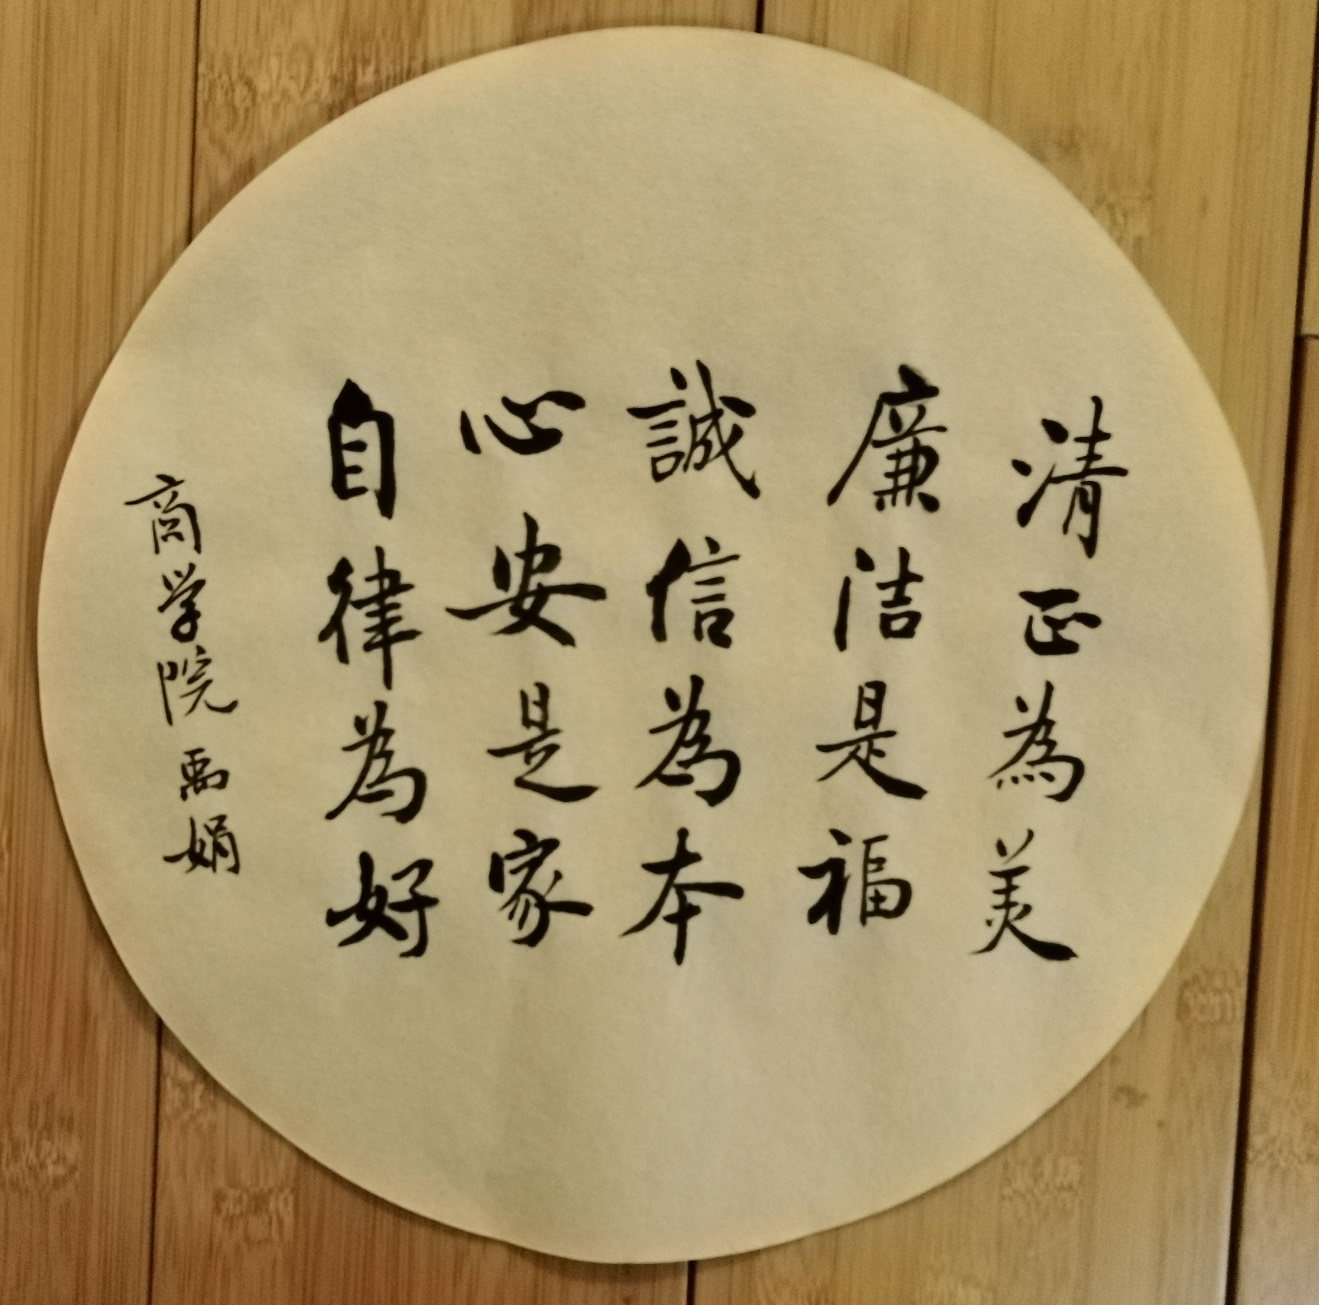 清正為美
廉洁是福
誠信為本
心安是家
自律為好
商学院 禹娟